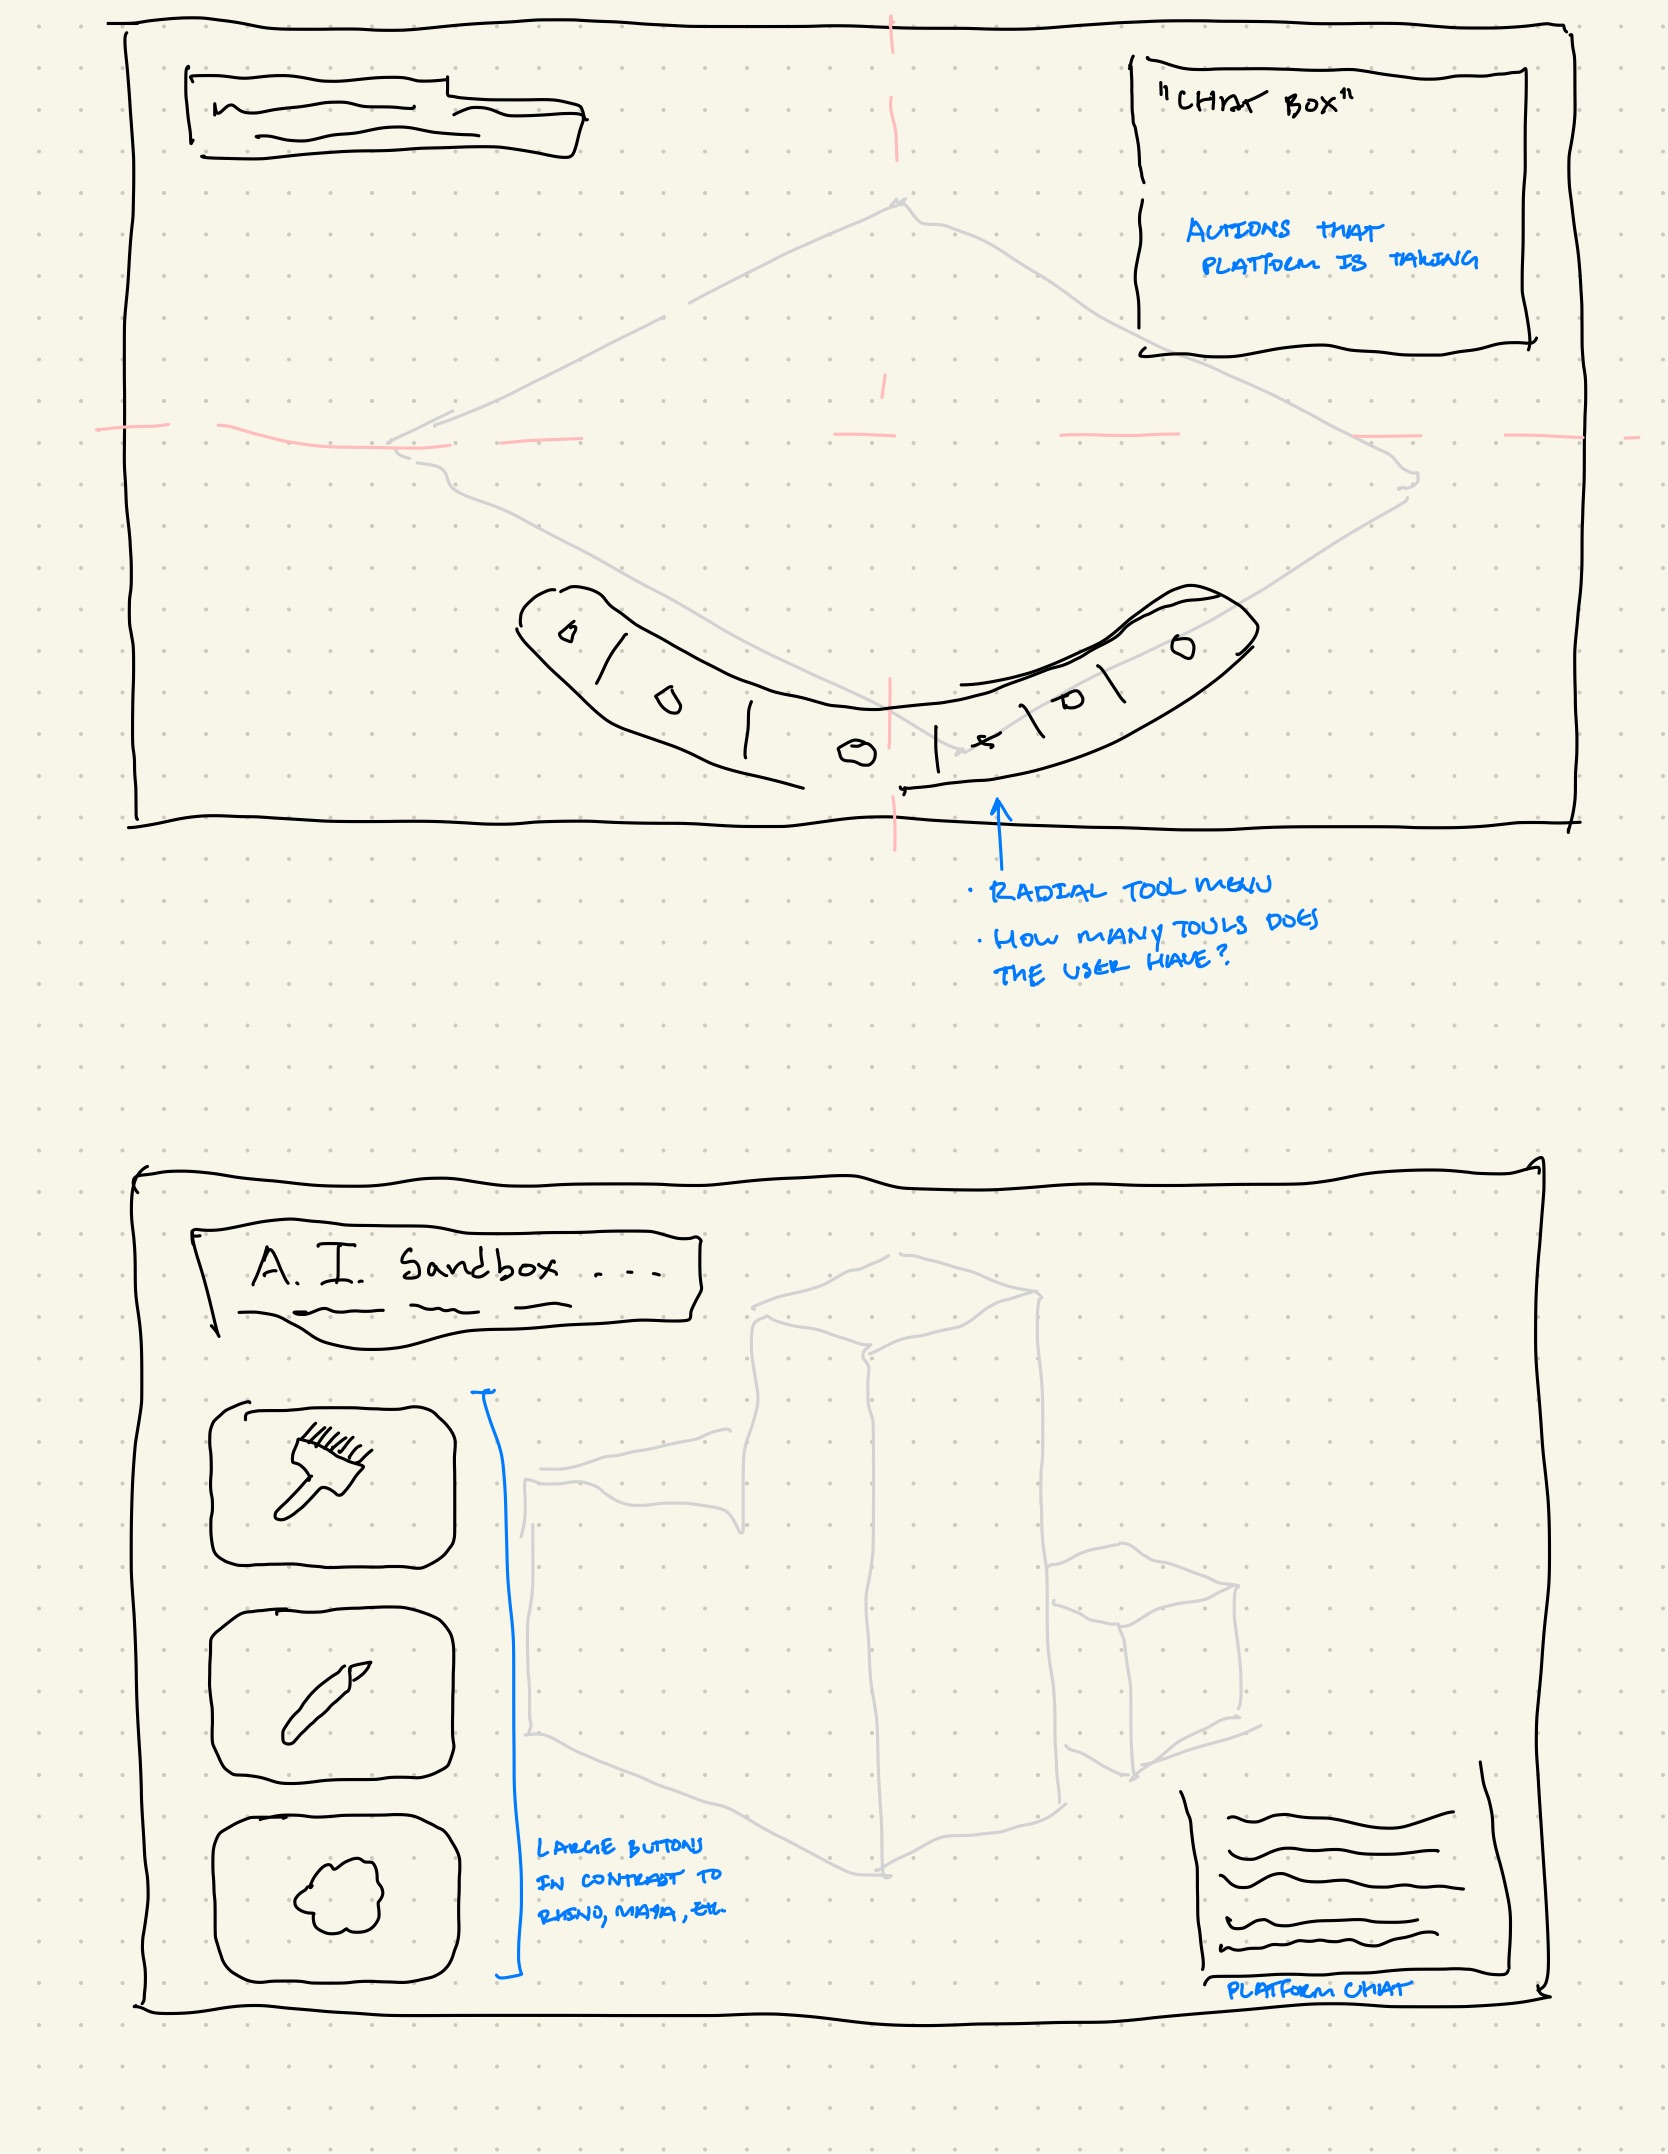 "CHAT BOX"
ACTIONS THAT
PLATFORM IS TAKING
· RADIAL TOOL MENU
· HOW MANY TOOLS DOES
THE USER HAVE?
A. I. Sandbox ...
LARGE BUTTONS
IN CONTRAST TO
RHINO, MAYA, ETC.
PLATFORM CHAT